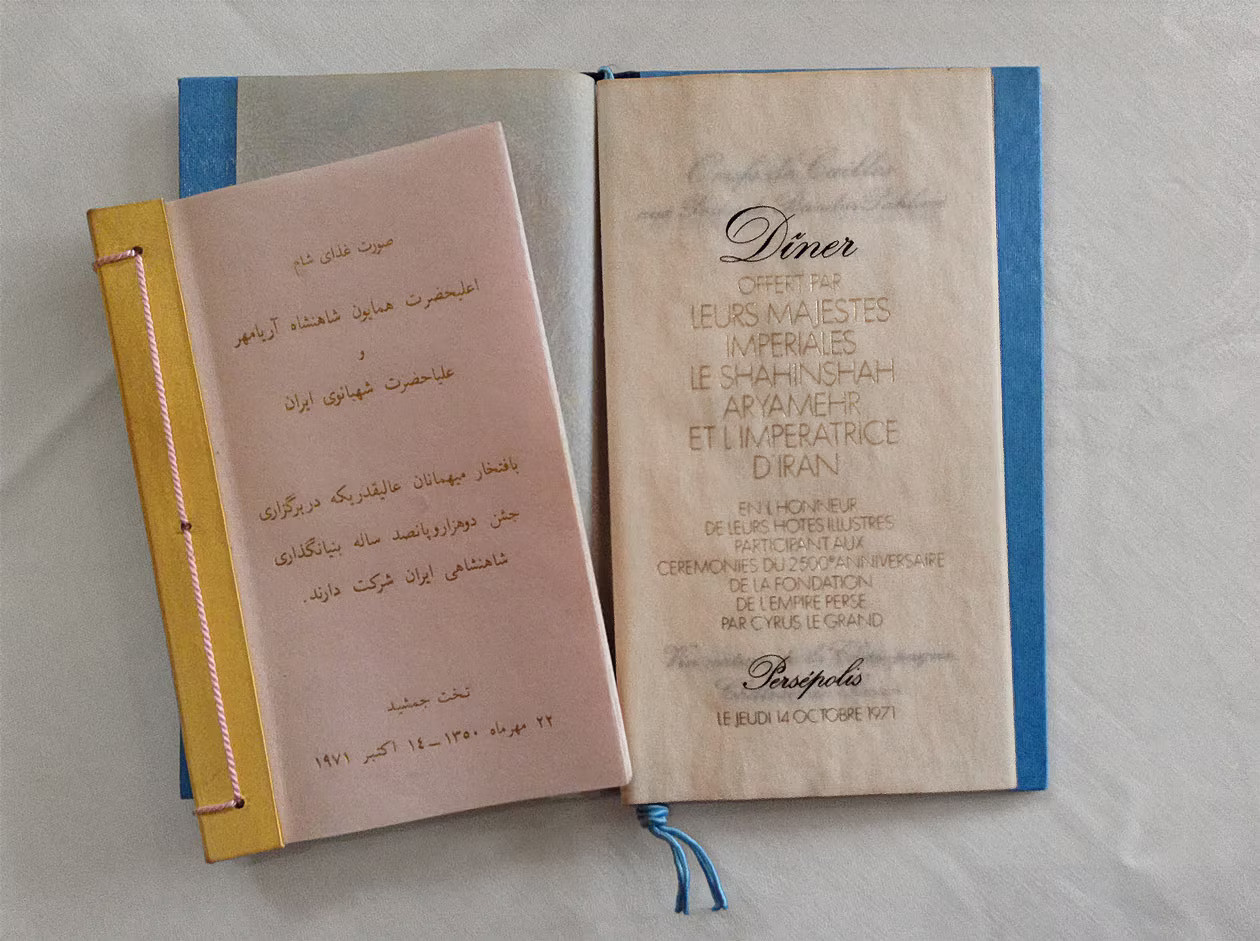 صورت غذای شام
اعلیحضرت همایون شاهنشاه آریامهر
و
علیاحضرت شهبانوی ایران
بافتخار میهمانان عالیقدریکه در برگزاری
جشن دوهزاروپانصد ساله بنیانگذاری
شاهنشاهی ایران شرکت دارند.
تخت جمشید
۲۲ مهرماه ۱۳۵۰ – ۱٤ اکتبر ۱۹۷۱
Dîner
OFFERT PAR
LEURS MAJESTES
IMPERIALES
LE SHAHINSHAH
ARYAMEHR
ET L'IMPERATRICE
D'IRAN
EN L'HONNEUR
DE LEURS HOTES ILLUSTRES
PARTICIPANT AUX
CEREMONIES DU 2500e ANNIVERSAIRE
DE LA FONDATION
DE L'EMPIRE PERSE
PAR CYRUS LE GRAND
Persépolis
LE JEUDI 14 OCTOBRE 1971